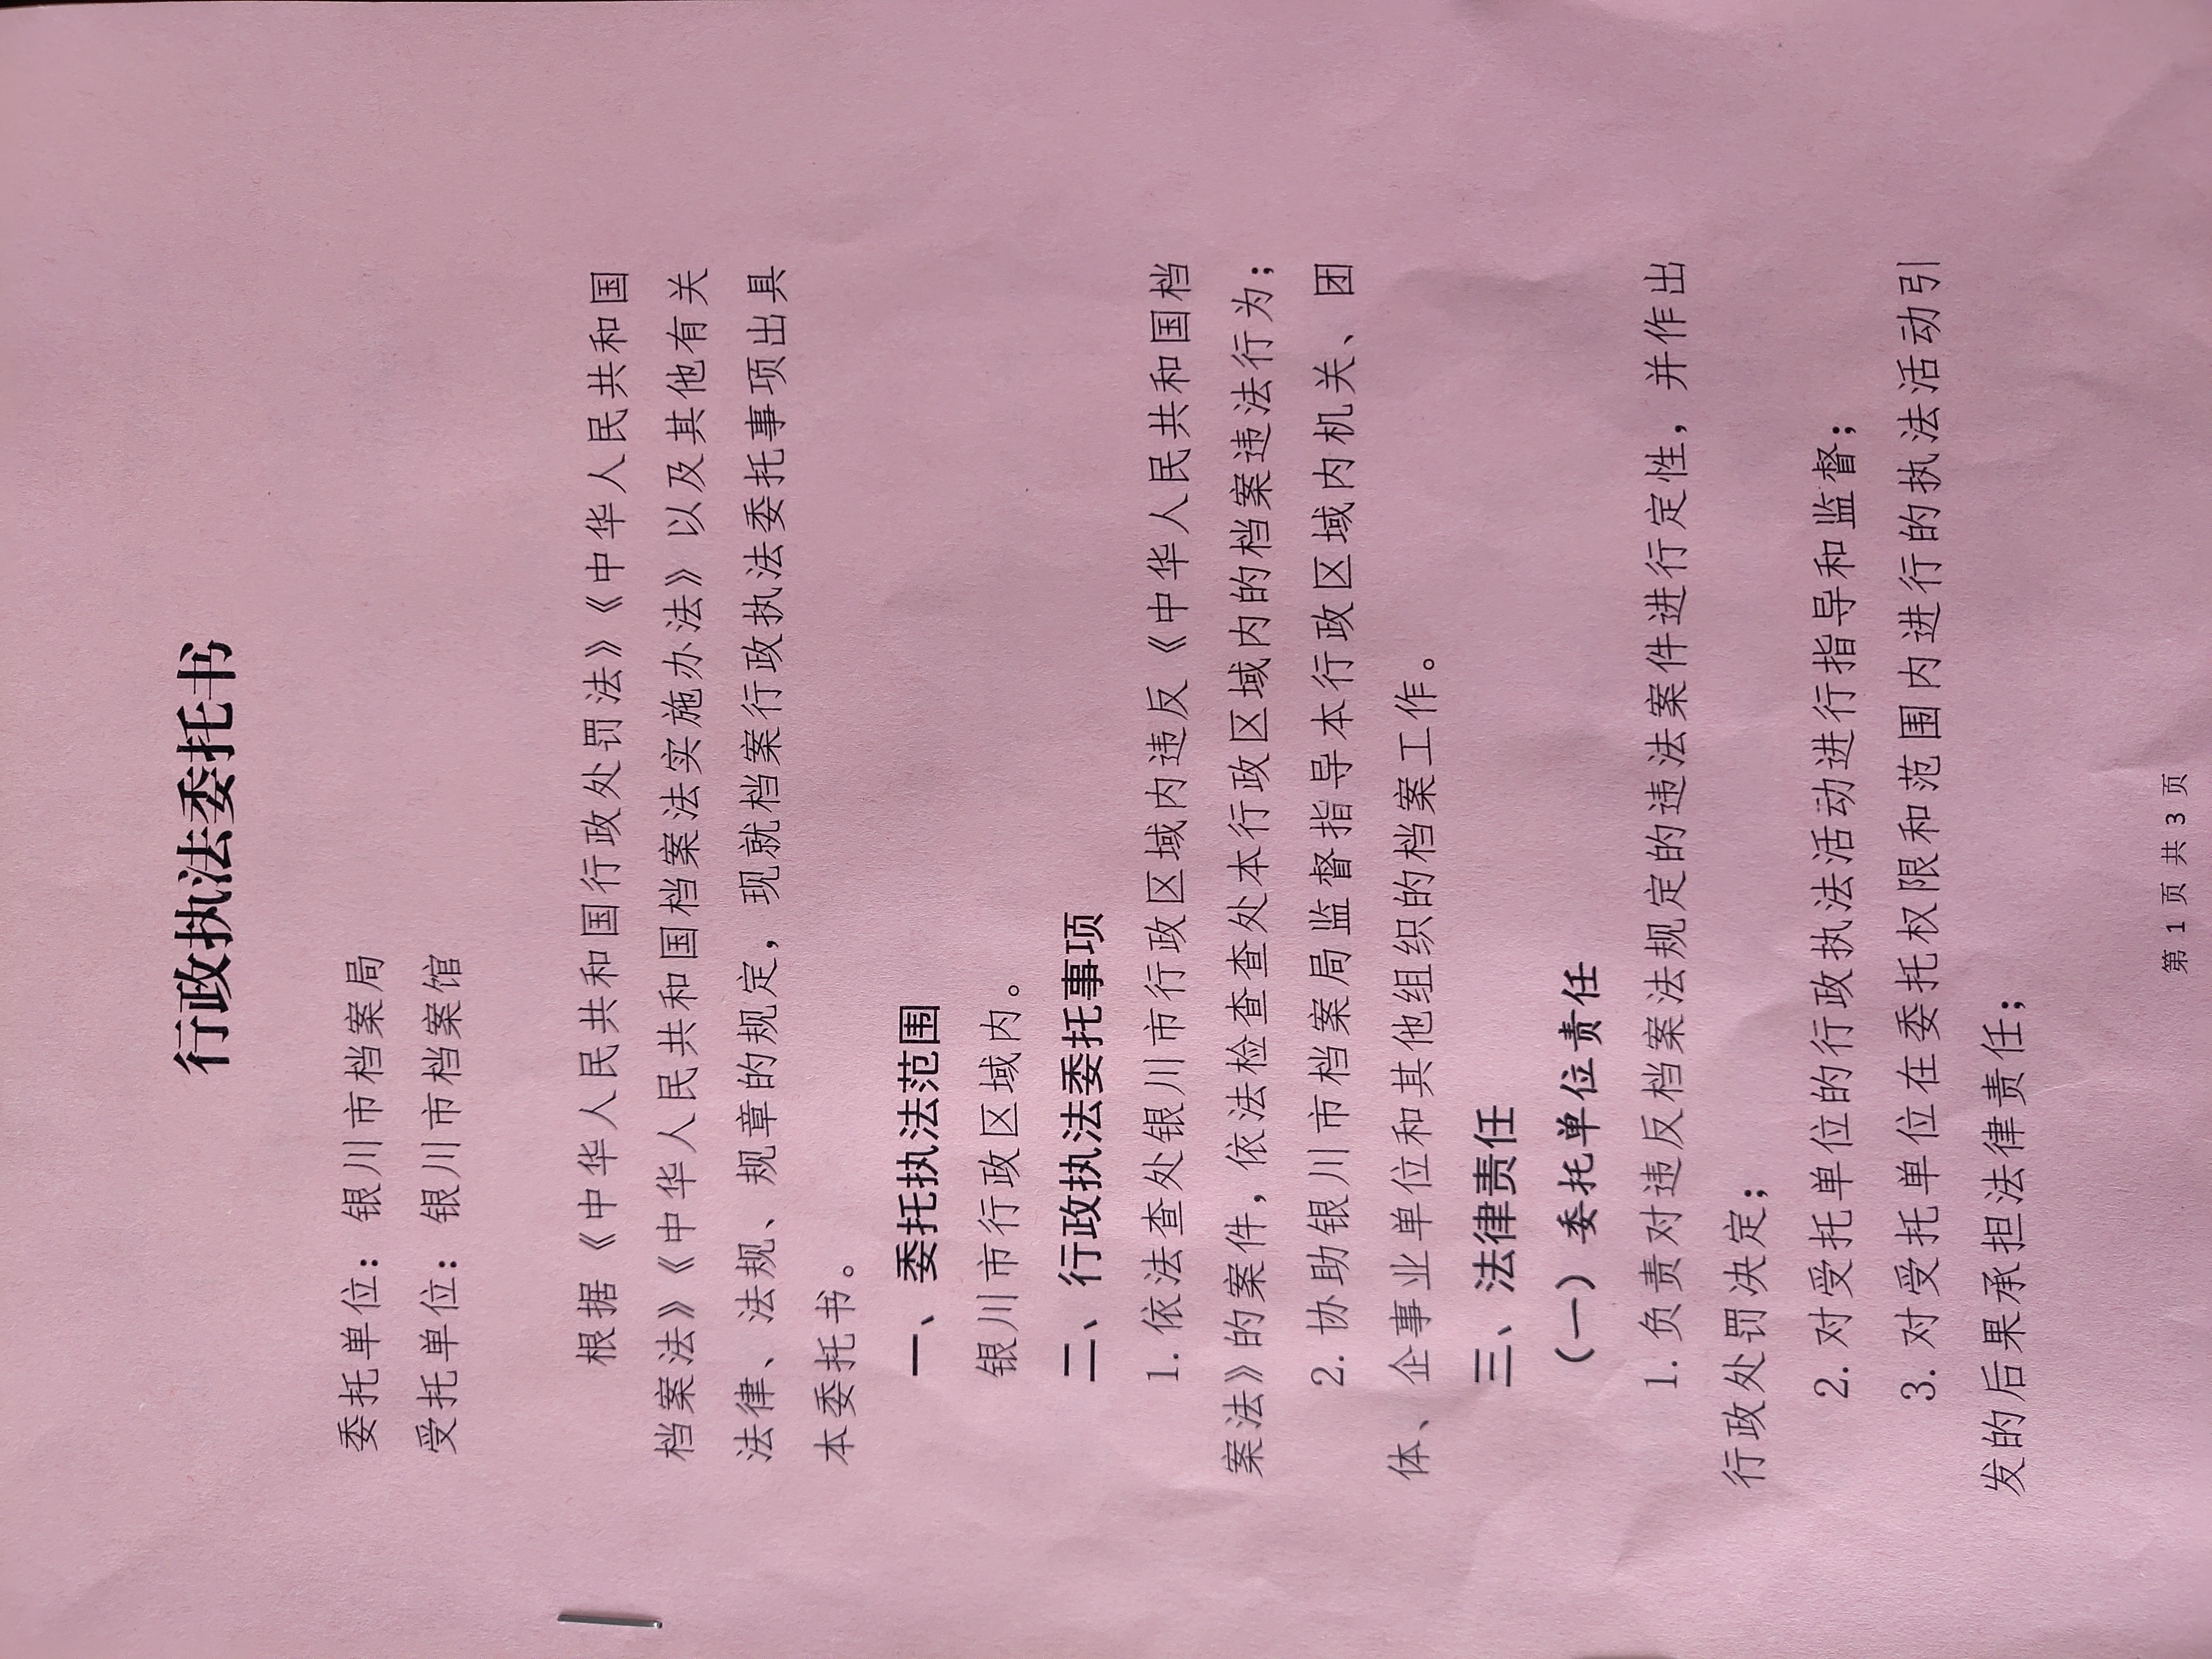 行政执法委托书
委托单位：银川市档案局
受托单位：银川市档案馆
根据《中华人民共和国行政处罚法》《中华人民共和国
档案法》《中华人民共和国档案法实施办法》以及其他有关
法律、法规、规章的规定，现就档案行政执法委托事项出具
本委托书。
一、委托执法范围
银川市行政区域内。
二、行政执法委托事项
1. 依法查处银川市行政区域内违反《中华人民共和国档
案法》的案件，依法检查查处本行政区域内的档案违法行为；
2. 协助银川市档案局监督指导本行政区域内机关、团
体、企事业单位和其他组织的档案工作。
三、法律责任
（一）委托单位责任
1. 负责对违反档案法规定的违法案件进行定性，并作出
行政处罚决定；
2. 对受托单位的行政执法活动进行指导和监督；
3. 对受托单位在委托权限和范围内进行的执法活动引
发的后果承担法律责任；
第 1 页 共 3 页